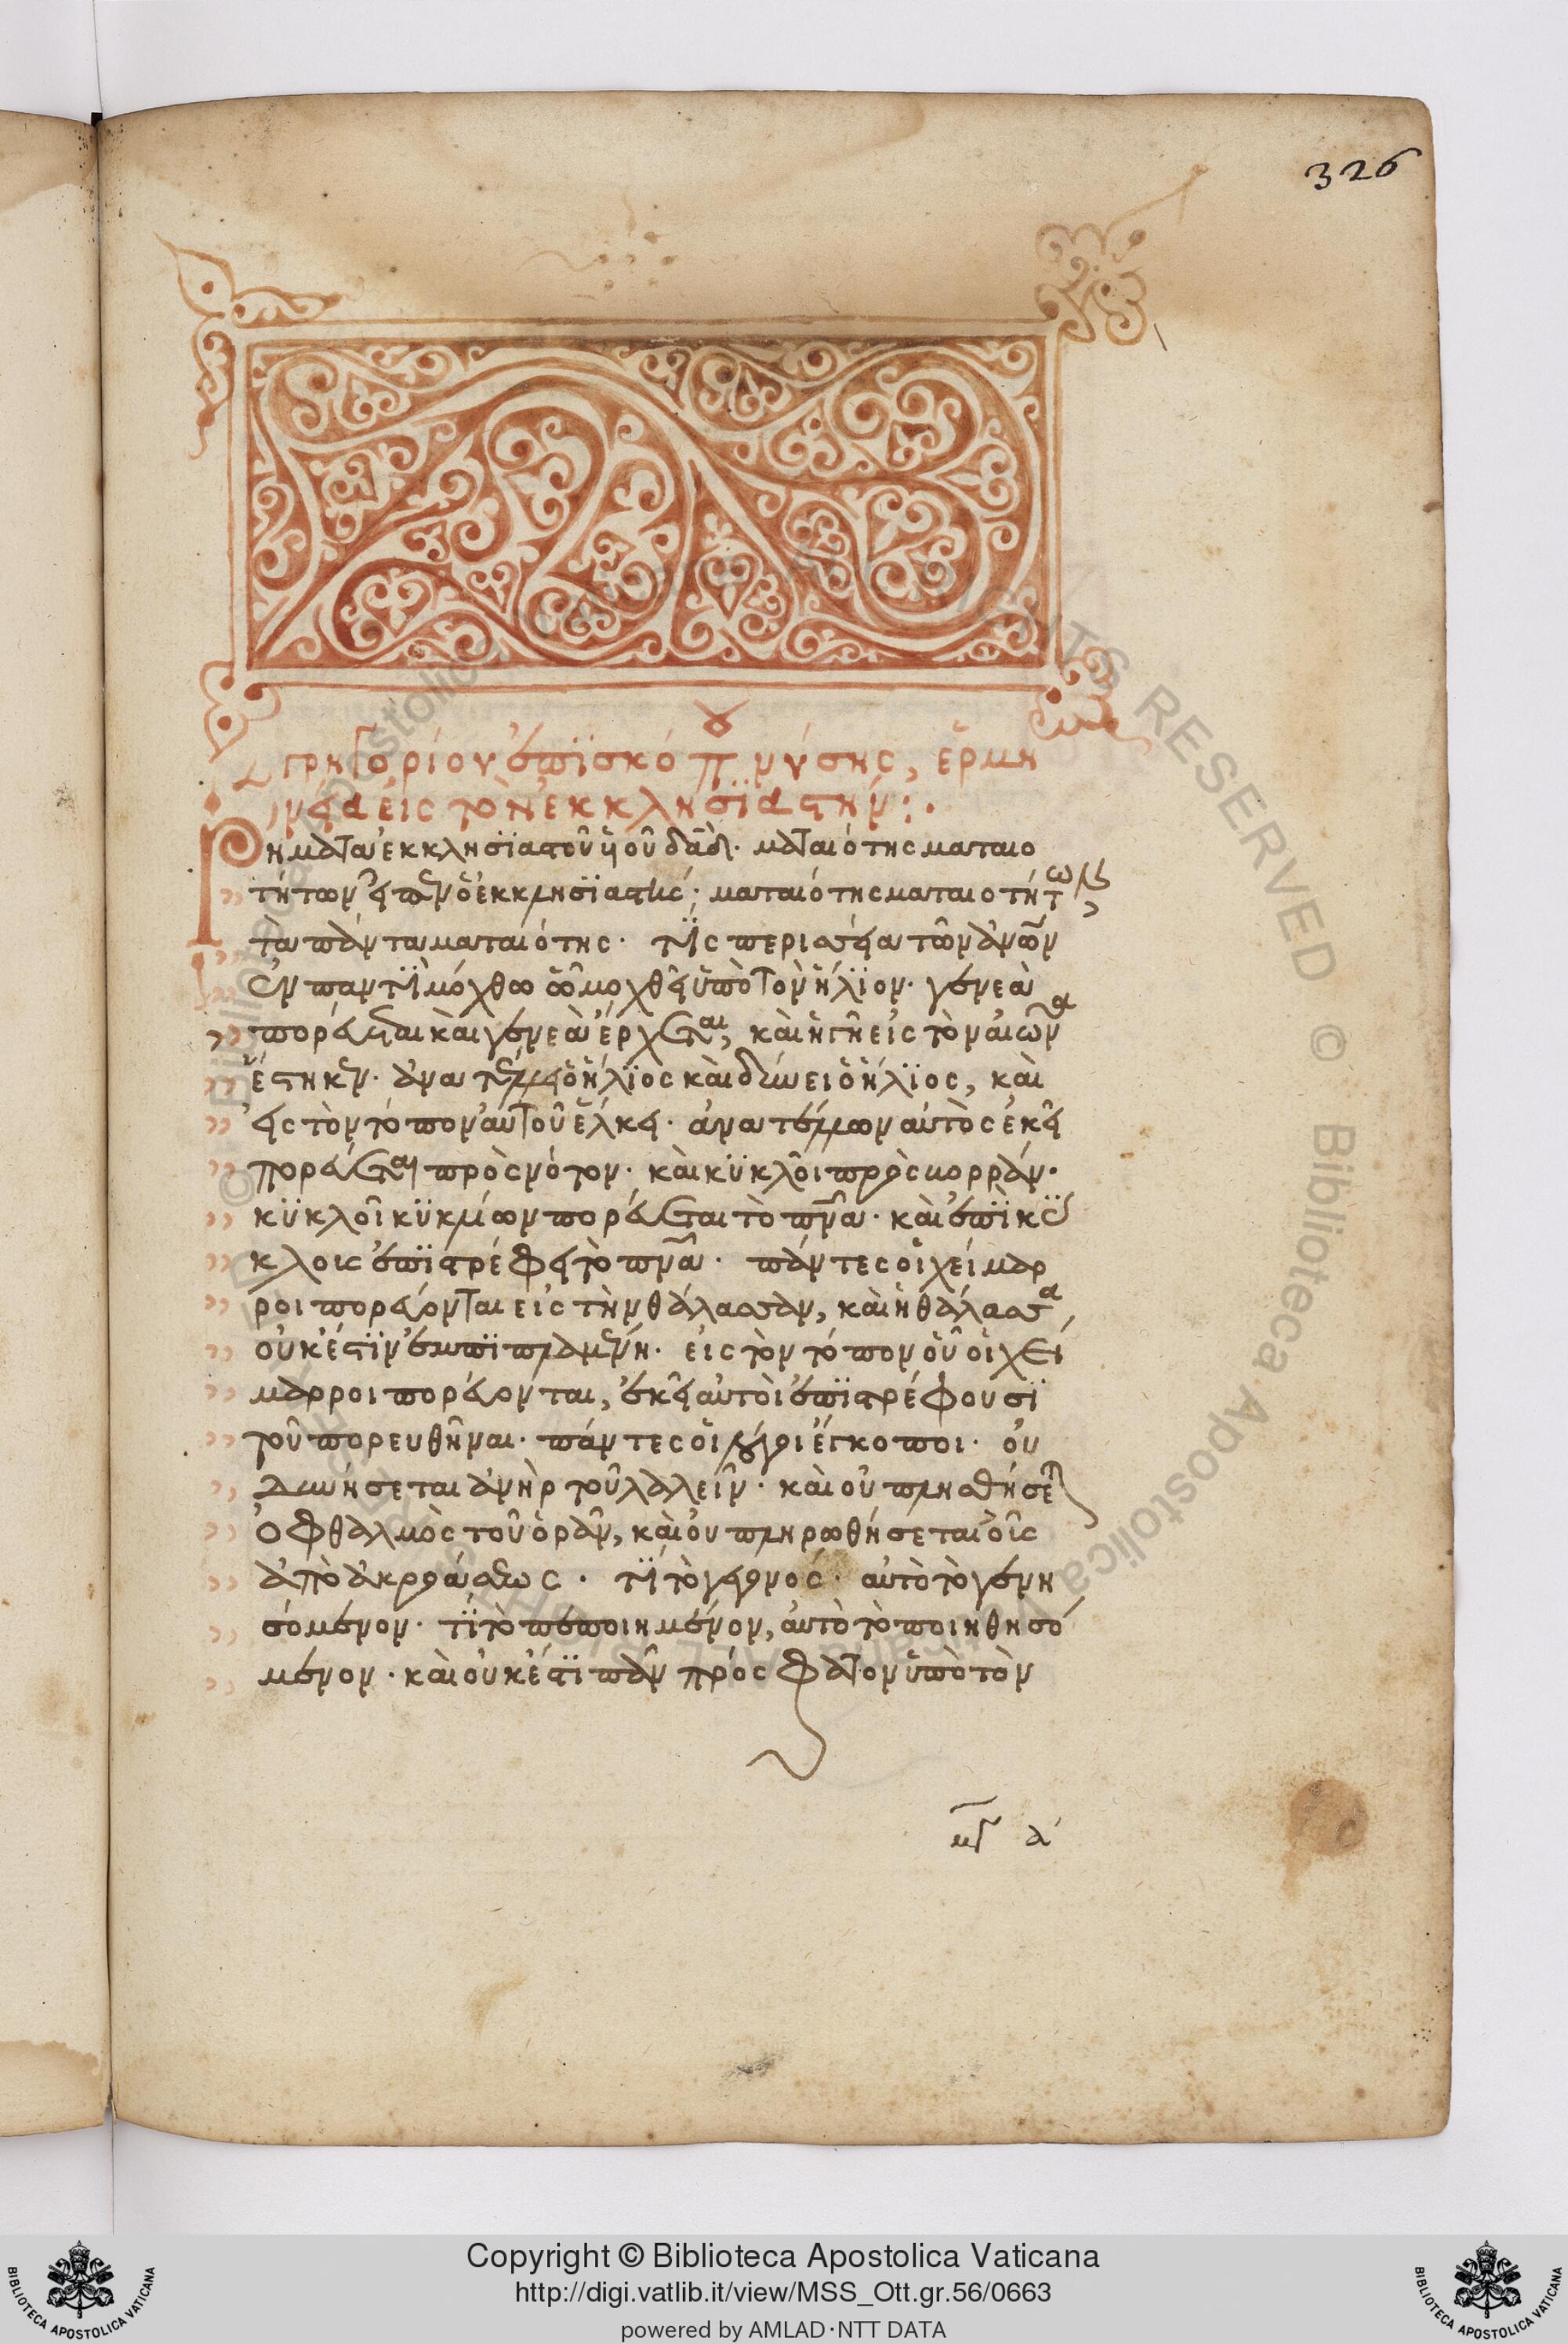 326
Γρηγορίου ἐπϊσκόπου νύσης, ἑρμη
νεία εἰς τὸν ἐκκλησϊαστήν:
Ρήματα ἐκκλησϊαστοῦ ὑιοῦ δᾱδ· ματαιότης ματαιο
τήτων εἶπεν ὁ ἐκκλησϊαστής· ματαιότης ματαιοτήτων
τὰ πάντα ματαιότης· τΐς περισσεία τῶν ἀνω̅ν
ἐν παντῒ μόχθω ὧ μοχθεῖ ὑπὸ τὸν ἥλϊον· γενεὰ
πορεύεται καὶ γενεὰ ἔρχεται, καὶ ἡ γῆ εἰς τὸν αἰῶνα
ἕστηκεν· ἀνατέλλει ὁ ἥλϊος καὶ δύνει ὁ ἥλϊος, καὶ
εἰς τὸν τόπον αὐτοῦ ἕλκει· ἀνατέλλων αὐτὸς ἐκεῖ
πορεύεται πρὸς νότον· καὶ κϋκλοῖ πρὸς βορρᾶν·
κϋκλοῖ κϋκλῶν πορεύεται τὸ πν̅α· καὶ ἐπῒ κϋ
κλοις ἐπϊστρέφει τὸ πν̅α· πάντες οἱ χείμαρ
ροι πορεύονται εἰς τὴν θάλασσαν, καὶ ἡ θάλασσα
οὐκ ἔστϊν ἐμπϊπλαμένη· εἰς τὸν τόπον οὗ οἱ χεί
μαρροι πορεύονται, ἐκεῖ αὐτοὶ ἐπϊστρέφουσϊ
τοῦ πορευθῆναι· πάντες οἱ λόγοι ἔγκοποι· οὐ
δυνήσεται ἀνὴρ τοῦ λαλεῖν· καὶ οὐ πλησθήσεται
ὀφθαλμὸς τοῦ ὁρᾶν, καὶ οὐ πληρωθήσεται οὖς
ἀπὸ ἀκροάσεως· τΐ τὸ γεγονός· αὐτὸ τὸ γενη
σόμενον· τΐ τὸ πεποιημένον, αὐτὸ τὸ ποιηθησό
μενον· καὶ οὐκ ἔστϊ πᾶν πρόσφατον ὑπὸ τὸν
Copyright © Biblioteca Apostolica Vaticana
http://digi.vatlib.it/view/MSS_Ott.gr.56/0663
powered by AMLAD·NTT DATA
BIBLIOTECA APOSTOLICA VATICANA
BIBLIOTECA APOSTOLICA VATICANA